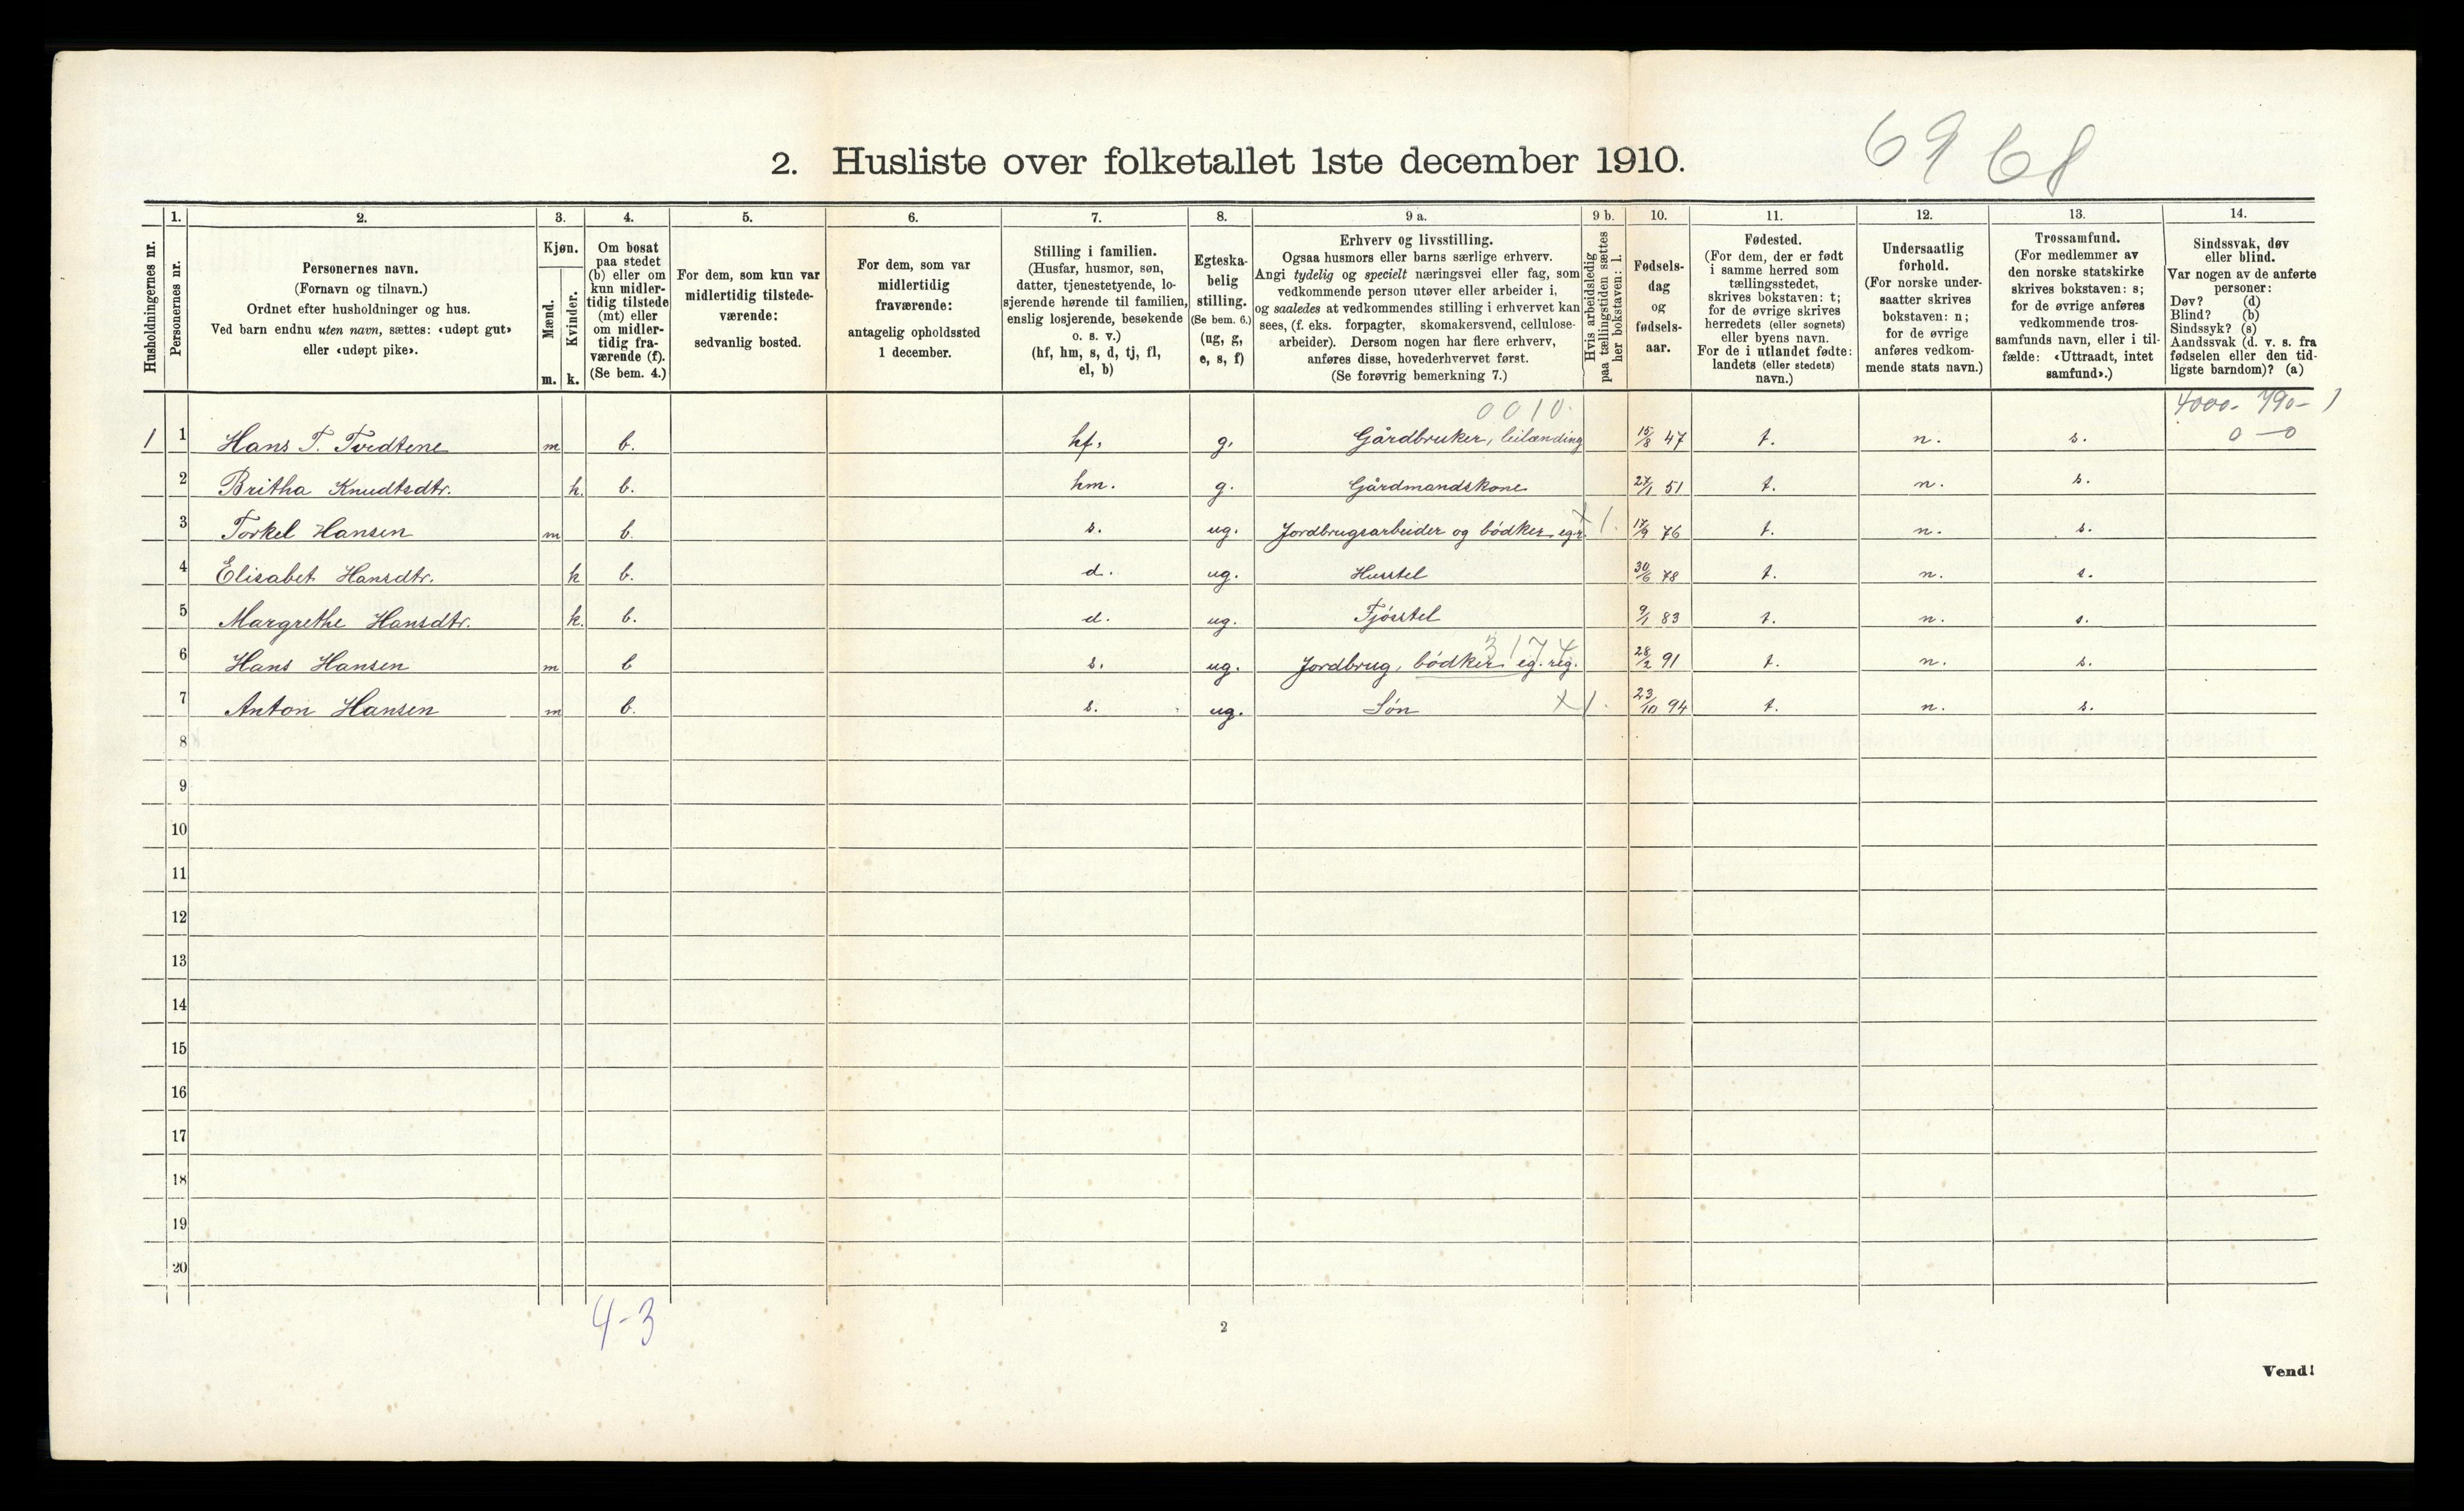 69 68
2. Husliste over folketallet 1ste december 1910.
Husholdningernes nr.
1.
Personernes nr.
2.
Personernes navn.
(Fornavn og tilnavn.)
Ordnet efter husholdninger og hus.
Ved barn endnu uten navn, sættes: «udøpt gut»
eller «udøpt pike».
3.
Kjøn.
Mænd.
m.
Kvinder.
k.
4.
Om bosat
paa stedet
(b) eller om
kun midler-
tidig tilstede
(mt) eller
om midler-
tidig fra-
værende (f).
(Se bem. 4.)
5.
For dem, som kun var
midlertidig tilstede-
værende:
sedvanlig bosted.
6.
For dem, som var
midlertidig
fraværende:
antagelig opholdssted
1 december.
7.
Stilling i familien.
(Husfar, husmor, søn,
datter, tjenestetyende, lo-
sjerende hørende til familien,
enslig losjerende, besøkende
o. s. v.)
(hf, hm, s, d, tj, fl,
el, b)
8.
Egteska-
belig
stilling.
(Se bem. 6.)
(ug, g,
e, s, f)
9 a.
Erhverv og livsstilling.
Ogsaa husmors eller barns særlige erhverv.
Angi tydelig og specielt næringsvei eller fag, som
vedkommende person utøver eller arbeider i,
og saaledes at vedkommendes stilling i erhvervet kan
sees, (f. eks. forpagter, skomakersvend, cellulose-
arbeider). Dersom nogen har flere erhverv,
anføres disse, hovederhvervet først.
(Se forøvrig bemerkning 7.)
9 b.
Hvis arbeidsledig
paa tællingstiden sættes
her bokstaven: l.
10.
Fødsels-
dag
og
fødsels-
aar.
11.
Fødested.
(For dem, der er født
i samme herred som
tællingsstedet,
skrives bokstaven: t;
for de øvrige skrives
herredets (eller sognets)
eller byens navn.
For de i utlandet fødte:
landets (eller stedets)
navn.)
12.
Undersaatlig
forhold.
(For norske under-
saatter skrives
bokstaven: n;
for de øvrige
anføres vedkom-
mende stats navn.)
13.
Trossamfund.
(For medlemmer av
den norske statskirke
skrives bokstaven: s;
for de øvrige anføres
vedkommende tros-
samfunds navn, eller i til-
fælde: «Uttraadt, intet
samfund».)
14.
Sindssvak, døv
eller blind.
Var nogen av de anførte
personer:
Døv? (d)
Blind? (b)
Sindssyk? (s)
Aandssvak (d. v. s. fra
fødselen eller den tid-
ligste barndom)? (a)
0010. 4000- 790- 1
1 1 Hans T. Tvedtene m b. hf. g. Gårdbruker, leilænding 15/8 47 t. n. s. 0—0
2 Britha Knudtsdtr. k. b. hm. g. Gårdmandskone 27/1 51 t. n. s.
3 Torkel Hansen m b. s. ug. Jordbrugsarbeider og bödker egr. X 1. 17/9 76 t. n. s.
4 Elisabet Hansdtr. k b. d. ug. Husstel 30/6 78 t. n. s.
5 Margrethe Hansdtr. k. b. d. ug. Fjösstel 9/1 83 t. n. s.
3174
6 Hans Hansen m b s. ug. Jordbrug, bödker eg. reg. 28/2 91 t. n. s.
7 Anton Hansen m b. s. ug. Sön X 1. 23/10 94 t. n. s.
8
9
10
11
12
13
14
15
16
17
18
19
20
4-3
2
Vend!